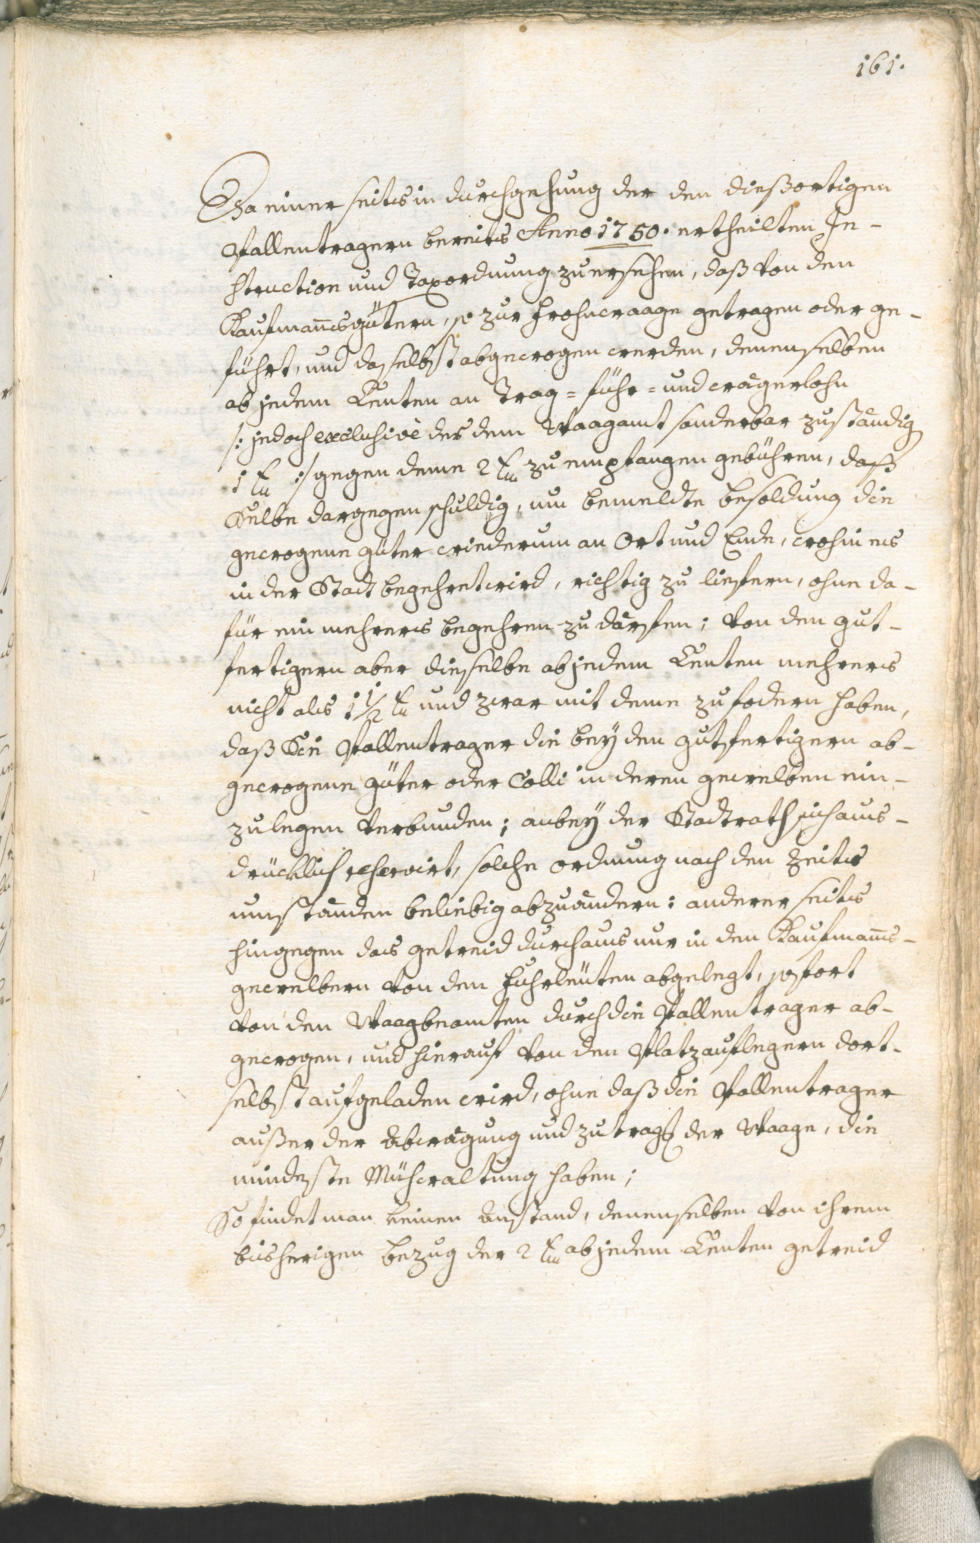 161.
Da einer seits in durchgehung der den diesßortigen
Pallentragern bereits Anno 1750. ertheilten In-
struction und Taxordnung zuersehen, daß von den
Kaufmannsgütern, so zur Frohnwaage getragen oder ge-
führt, und daselbst abgewogen werden, denenselben
ab jedem Centen an Trag= fuhr= und wägerlohn
/: jedoch exclusivè des dem Waagamt sonderbar zuständig
1 xr :/ gegen deme 2 xr zu empfangen gebühren, daß
Selbe dargegen schuldig, um bemeldte besoldung die
gewogene güter wiederum an Ort und Ende, wohin es
in der Stadt begehret wird, richtig zu liefern, ohne da-
für ein mehrers begehren zu därfen; von den gut-
fertigern aber dieselbe ab jedem Centen mehrers
nicht als 1 1/2 xr und zwar mit deme zu fodern haben,
daß Die Pallentrager die bey den gutfertigern ab-
gewogene güter oder Colli in deren gewelben ein-
zulegen verbunden; anbey der Stadtrath sich aus-
drücklich reservirt, solche ordnung nach den Zeits
umständen beliebig abzuändern: anderer seits
hingegen das getreid durchaus nur in den Kaufmanns-
gewelbern von den Fuhrleuten abgelegt, sofort
von den Waagbeamten durch die Pallentrager ab-
gewogen, und hierauf von den Platzauflegern dort-
selbst aufgeladen wird, ohne daß die Pallentrager
außer der Abwägung und zutragg der Waage, die
mindeste Mühewaltung haben;
So findet man keinen Anstand, denenselben von ihrem
bisherigen bezug der 2 xr ab jedem Centen getreid